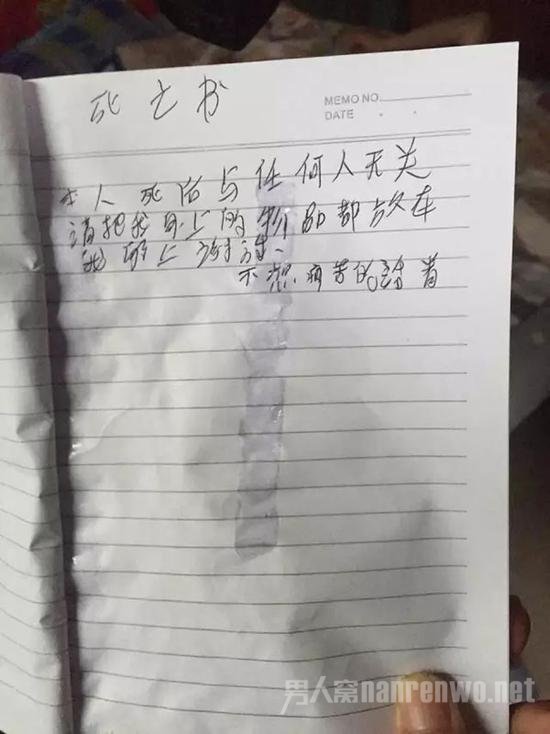 MEMO NO.
死亡书
DATE
本人死后与任何人无关
请把我身上的物品都放在
我 上谢谢
不想 痛苦的 着
男人窝nanrenwo.net